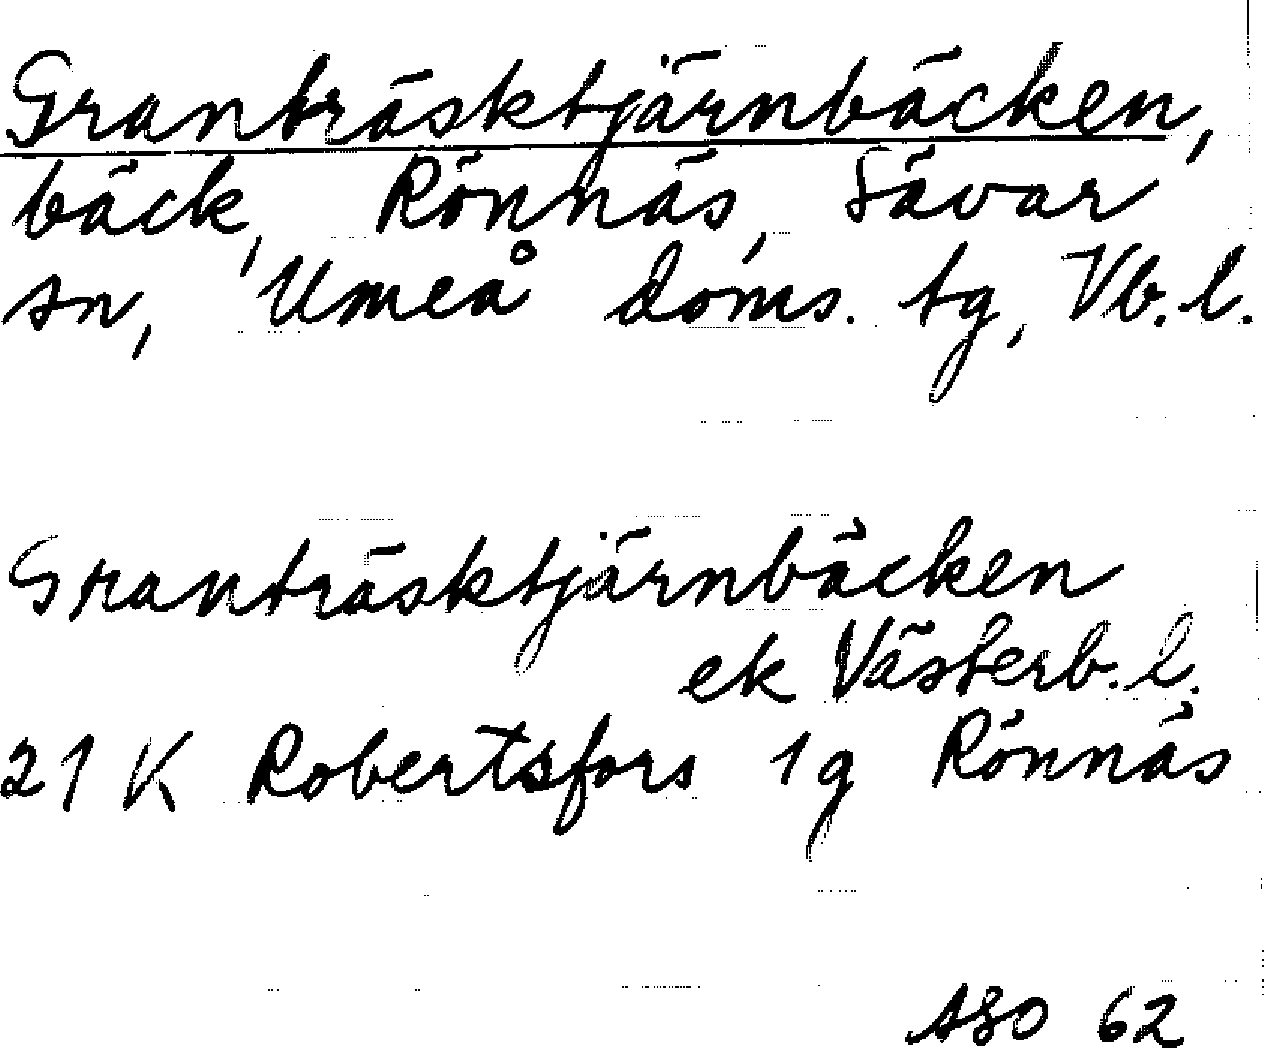 Granträsktjärnbäcken,
bäck, Rönnäs, Sävar
sn, Umeå doms. tg, Vb. l.
Granträsktjärnbäcken
ek Västerb. l.
21 K Robertsfors 1 g Rönnäs
ASO 62